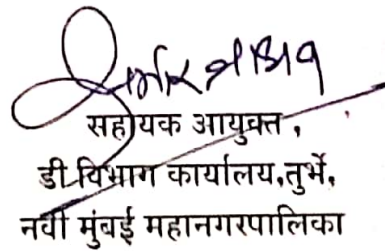 सहाय्यक आयुक्त ,
डी विभाग कार्यालय,तुर्भे,
नवी मुंबई महानगरपालिका